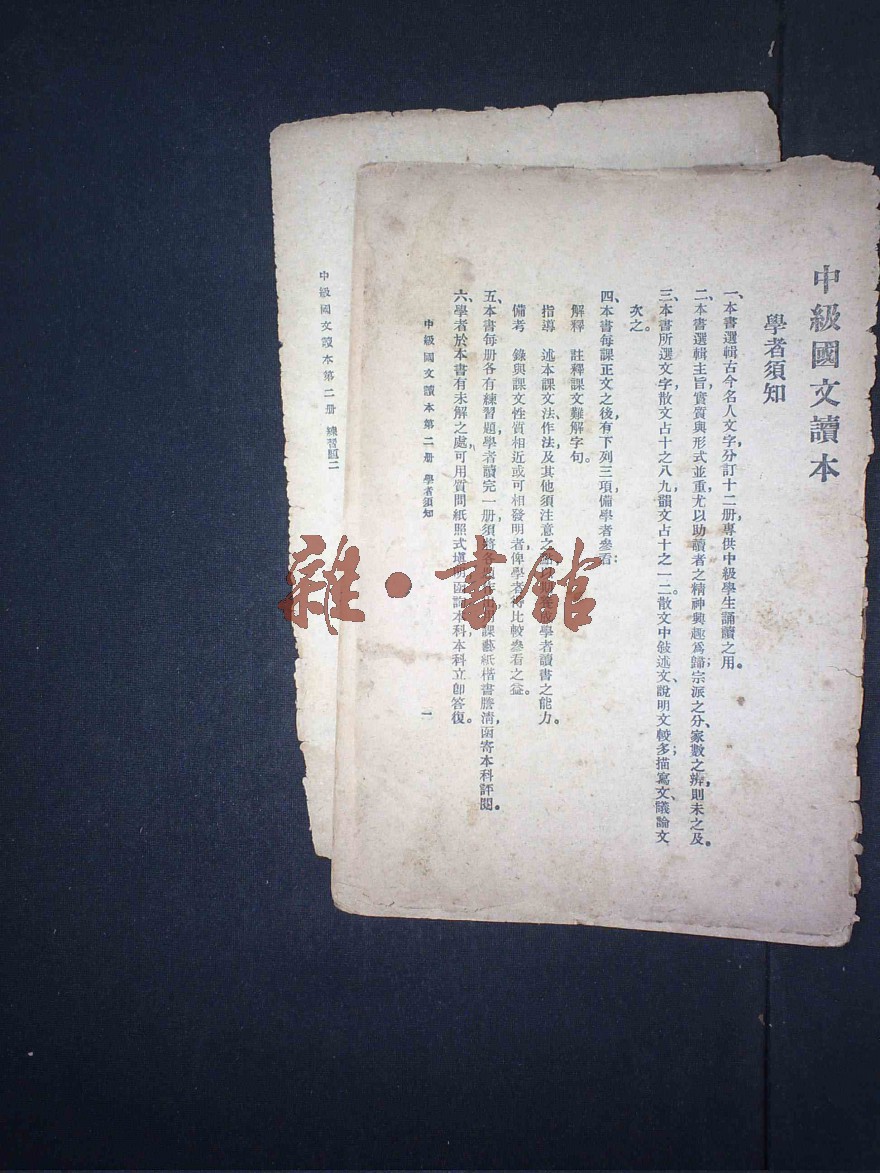 中級國文讀本
學者須知
一、本書選輯古今名人文字，分訂十二册，專供中級學生誦讀之用。
二、本書選輯主旨，實質與形式並重，尤以助讀者之精神興趣爲歸；宗派之分、家數之辨，則未之及。
三、本書所選文字，散文占十之八九，韻文占十之一二。散文中敍述文、說明文較多；描寫文、議論文
次之。
四、本書每課正文之後，有下列三項，備學者參看：
解釋　註釋課文難解字句。
指導　述本課文法、作法及其他須注意之　學者讀書之能力。
備考　錄與課文性質相近或可相發明者，俾學者得比較參看之益。
五、本書每册各有練習題，學者讀完一册，須　課藝紙楷書謄清，函寄本科評閱。
六、學者於本書有未解之處，可用質問紙照式塡明，函　本科，本科立卽答復。
中級國文讀本第二册　學者須知
一
中級國文讀本第二册　練習題二
雜·書館